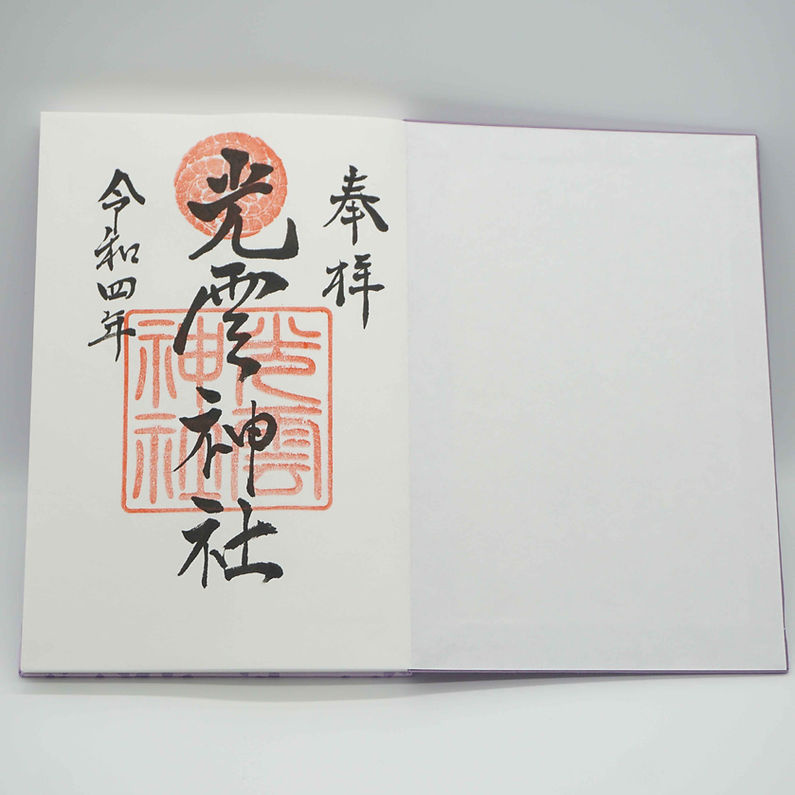 奉拝
光雲神社
光雲神社
令和四年